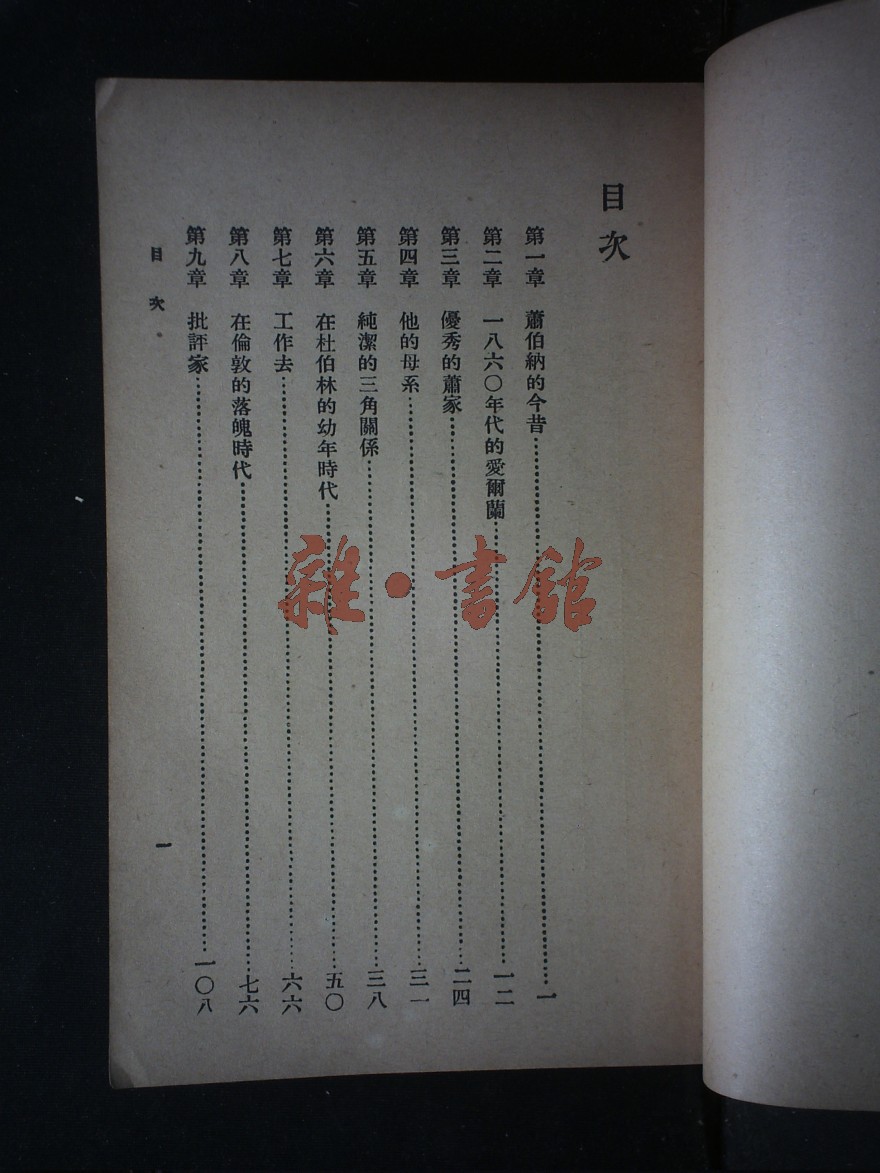 目次
第一章 蕭伯納的今昔……一
第二章 一八六〇年代的愛爾蘭……一二
第三章 優秀的蕭家……二四
第四章 他的母系……三一
第五章 純潔的三角關係……三八
第六章 在杜伯林的幼年時代……五〇
第七章 工作去……六六
第八章 在倫敦的落魄時代……七六
第九章 批評家……一〇八
目次
一
雜·書館